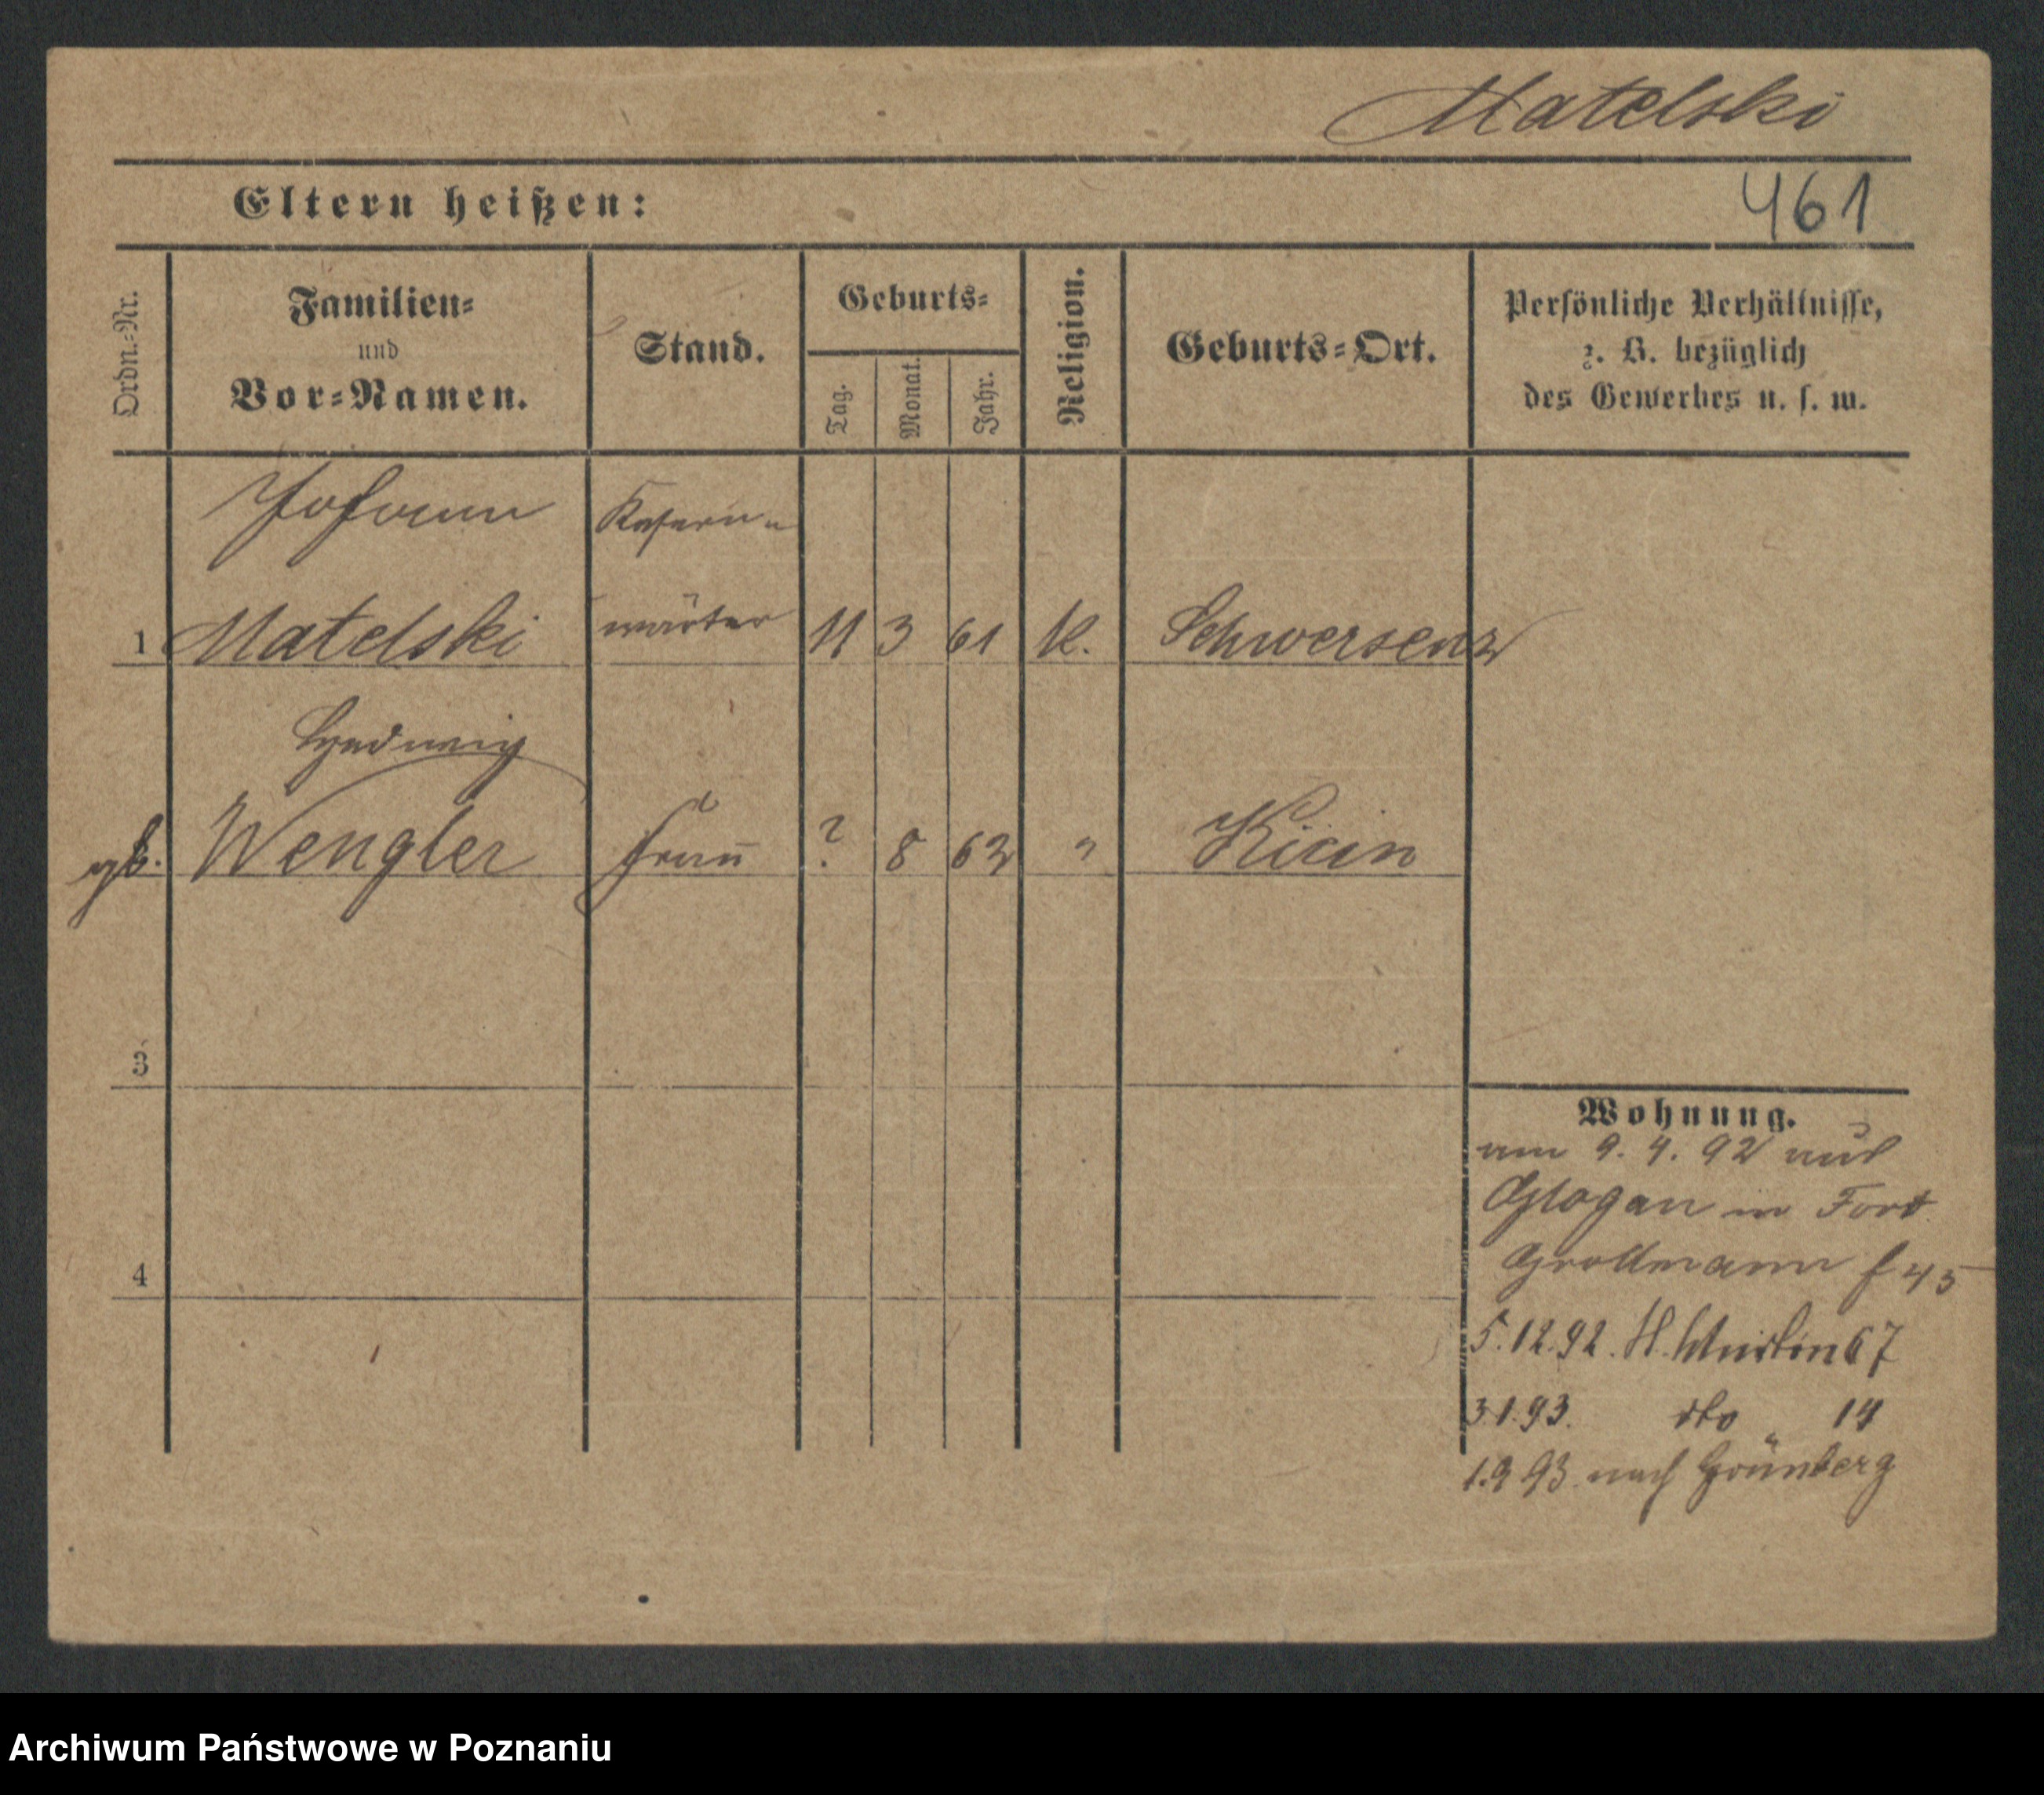 Matelski
Eltern heißen:
461
Ordn.-Nr.
Familien-
und
Vor-Namen.
Stand.
Geburts-
Tag.
Monat.
Jahr.
Religion.
Geburts-Ort.
Persönliche Verhältnisse,
z. B. bezüglich
des Gewerbes u. s. w.
Johann
Kasern-
1 Matelski wärter 11 3 61 K. Schwersenz
Hedwig
gb. Wengler Frau ? 8 62 " Kicin
3
4
Wohnung.
am 9. 4. 92 aus
Glogau in Fort
Grollmann f 45
5.12.92. St. Martin 67
3.1.93. dto 14
1.9 93. nach Grünberg
Archiwum Państwowe w Poznaniu